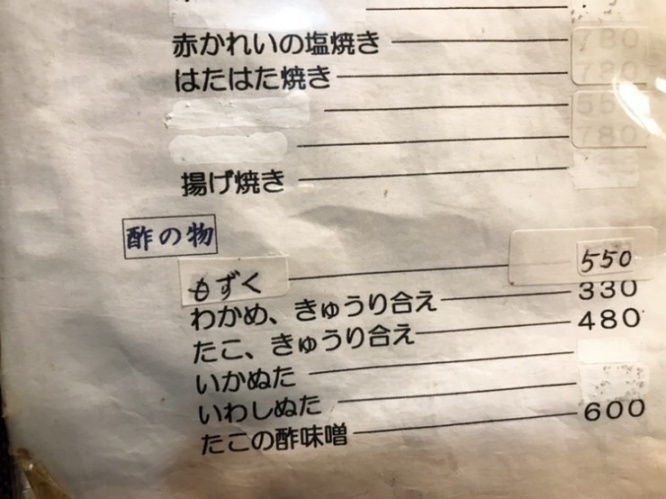 赤かれいの塩焼き 780
はたはた焼き 780
550
780
揚げ焼き
酢の物
もずく 550
わかめ、きゅうり合え 330
たこ、きゅうり合え 480
いかぬた
いわしぬた
たこの酢味噌 600